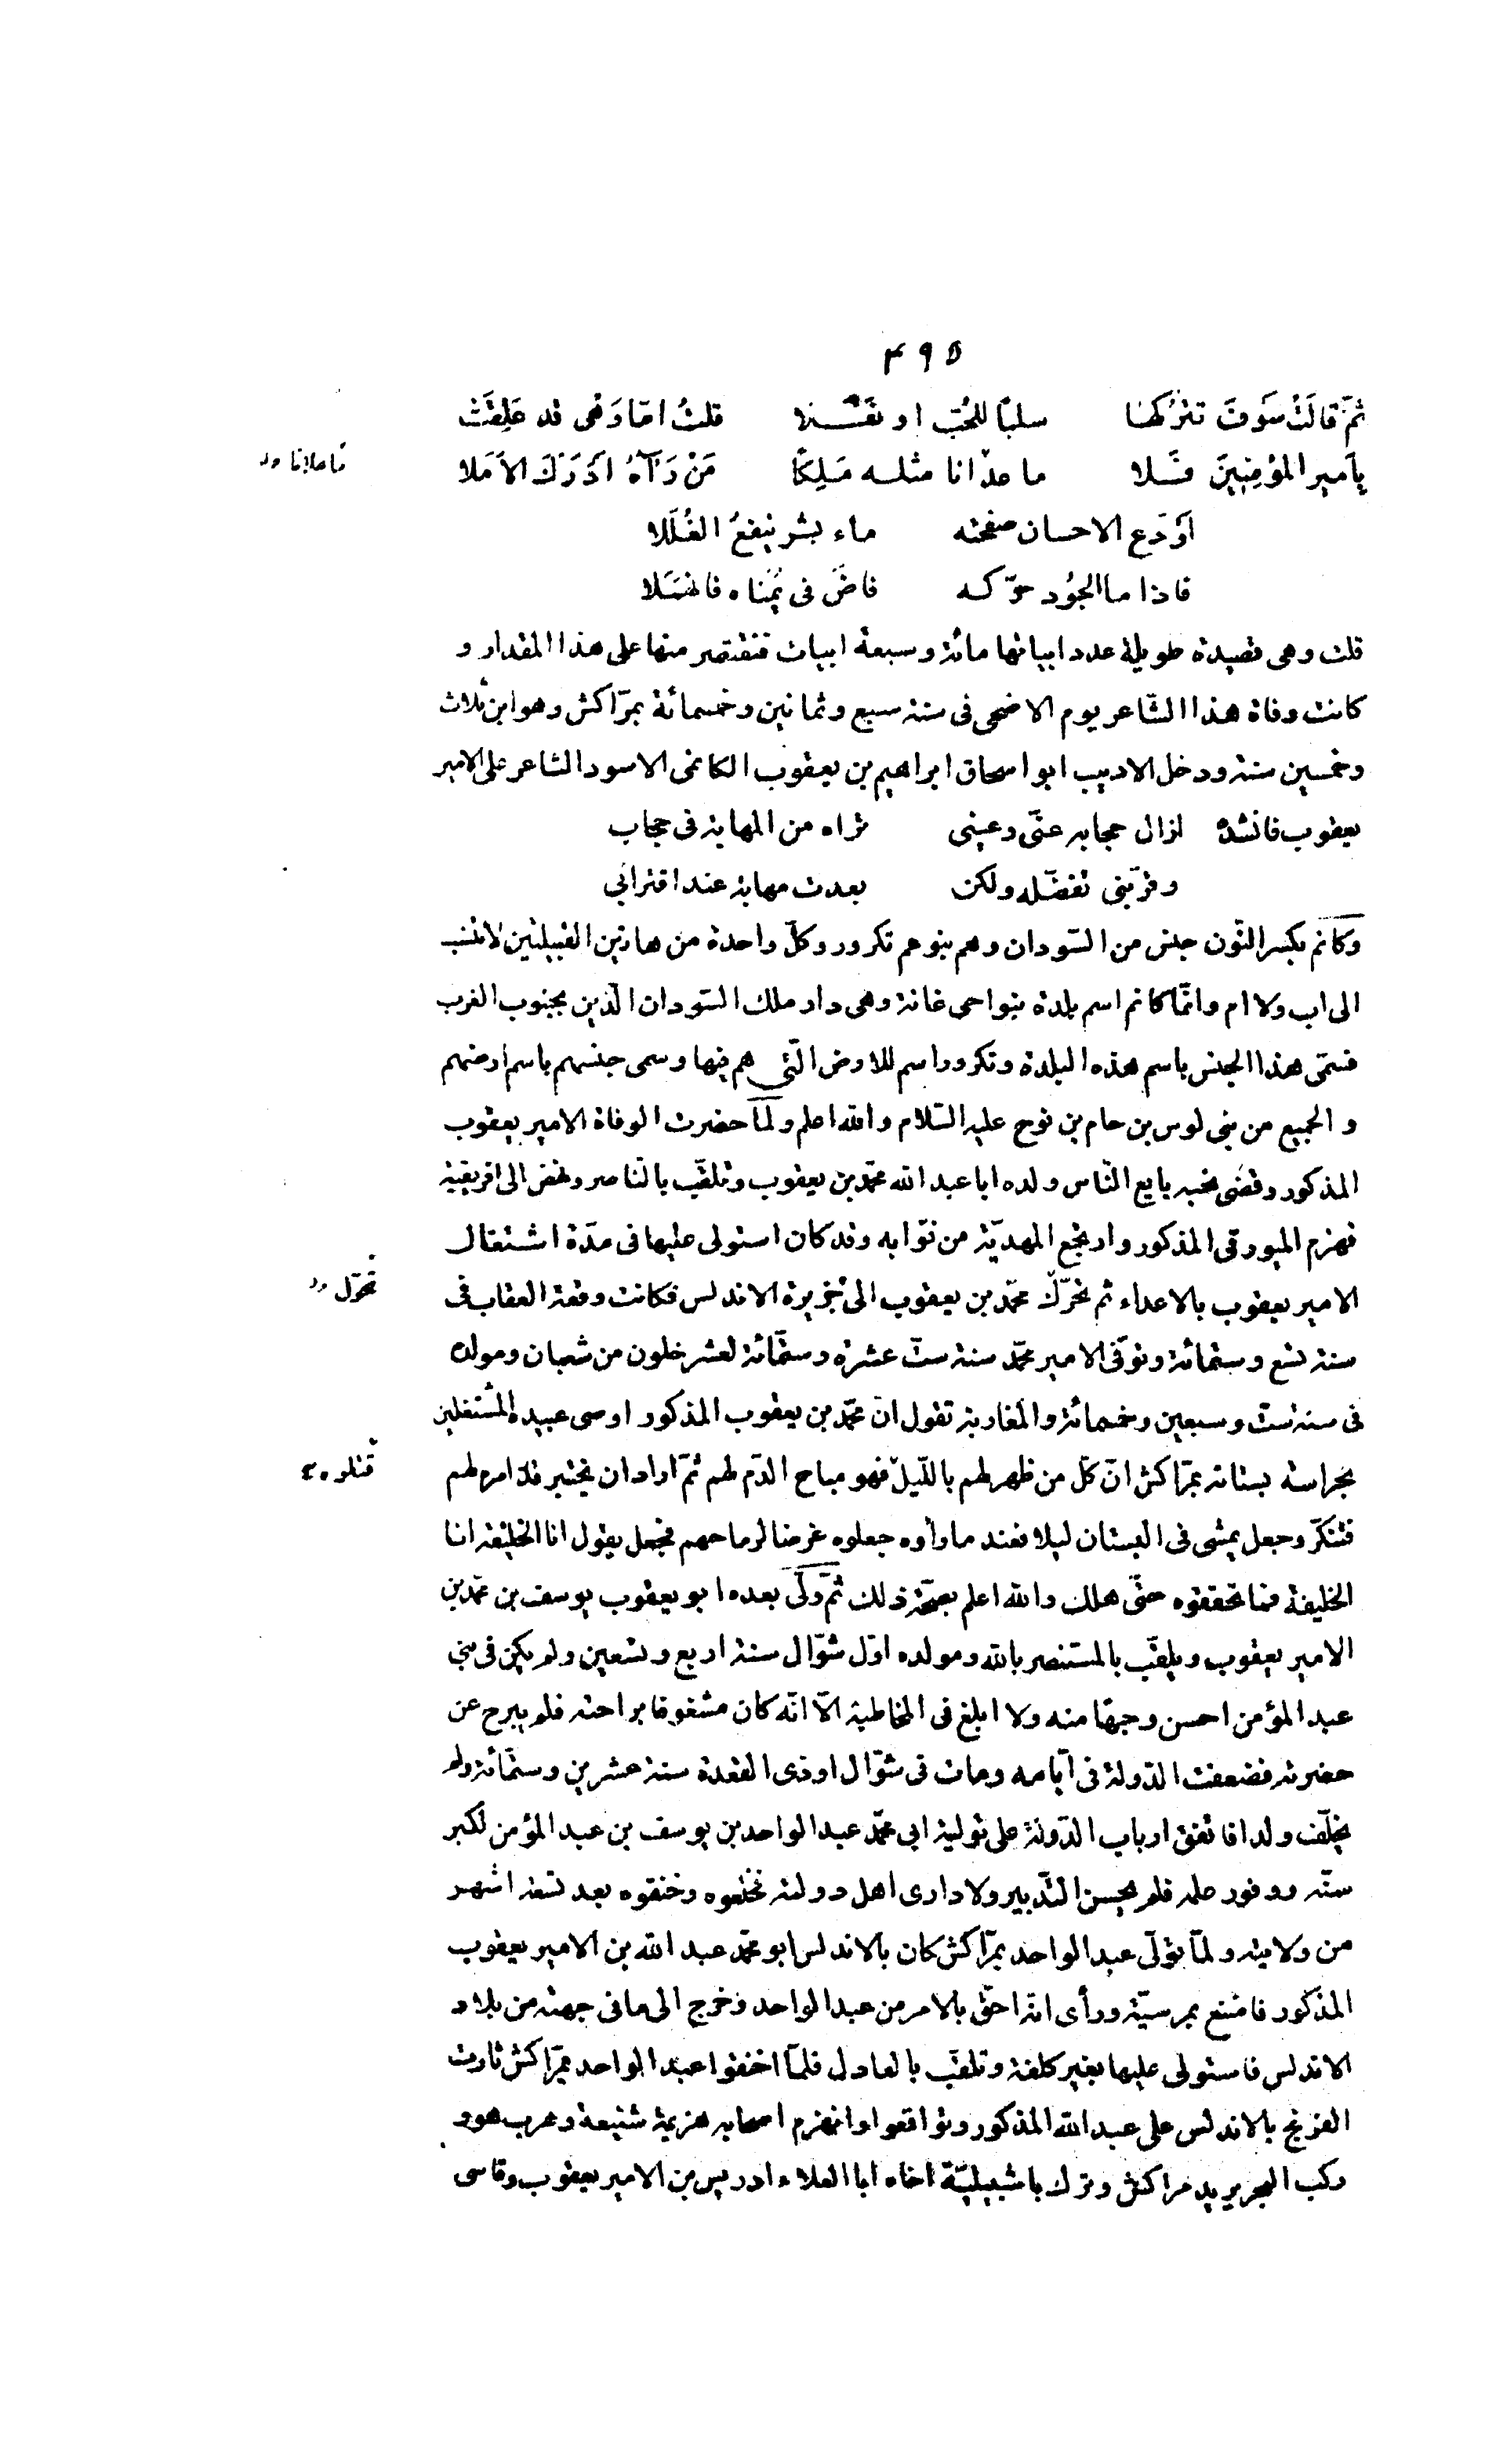 ٤٩٥
ثمّ قالَتْ سَوفَ نتركُها سلبًا للحُبّ او نَفَـلا قلتُ امّا وَهْى قد عَلِقَتْ
بِاَمير المؤمِنِينَ فـَلا ما عدانا مثله مَلِكًا مَنْ رَآهُ اَدْرَكَ الاَمَلا
ما علانا
اَوْدَع الاحسان صفحته ماء بشر ينقعُ الغُلَلا
فاذا ما الجوُد حرّكه فاضَ فى يُمْناه فانهمَلا
قلت وهى قصيدة طويلة عدد ابياتها مائة وسبعة ابيات فنقتصر منها على هذا المقدار و
كانت وفاة هذا الشاعر يوم الاضحى فى سنة سبع وثمانين وخمسمائة بمرّاكش وهو ابن ثلاث
وخمسين سنة ودخل الاديب ابو اسحاق ابراهيم بن يعقوب الكانمى الاسود الشاعر على الامير
يعقوب فانشده ازال حجابه عنّى وعينى تراه من المهابة فى حجاب
وقرّبنى تفضّله ولكن بعدت مهابة عند اقترابى
وكانم بكسر النّون جنس من السّودان وهم بنو عم تكرور وكلّ واحدة من هاتين القبيلتين لا تنسب
الى اب ولا ام وانّما كانم اسم بلدة بنواحى غانة وهى دار ملك السّودان الّذين بجنوب الغرب
فسمّى هذا الجنس باسم هذه البلدة وتكرور اسم للارض الّتى هم فيها وسمى جنسهم باسم ارضهم
والجميع من بنى لوس بن حام بن نوح عليه السّلام والله اعلم ولمّا حضرت الوفاة الامير يعقوب
المذكور وقضى نحبه بايع النّاس ولده ابا عبد الله محمّد بن يعقوب وتلقّب بالنّاصر ونهض الى افريقية
فهزم الميورقى المذكور وارتجع المهديّة من نوّابه وقد كان استولى عليها فى مدّة اشتغال
الامير يعقوب بالاعداء ثم تحرّك محمّد بن يعقوب الى جزيرة الاندلس فكانت وقعة العقاب فى
تحوّل
سنة تسع وستمائة وتوفّى الامير محمّد سنة ستّ عشرة وستّمائة لعشر خلون من شعبان ومولده
فى سنة ستّ وسبعين وخمسمائة والمغاربة تقول انّ محمّد بن يعقوب المذكور اوصى عبيده المشتغلين
بحراسة بستانه بمرّاكش انّ كلّ من ظهر لهم باللّيل فهو مباح الدّم لهم ثمّ اراد ان يختبر قدر امره لهم
فتنكّر وجعل يمشى فى البستان ليلا فعند ما راوه جعلوه غرضا لرماحهم فجعل يقول انا الخليفة انا
الخليفة فما تحققوه حتّى هلك والله اعلم بصحّة ذلك ثمّ ولّى بعده ابو يعقوب يوسف بن محمّد بن
الامير يعقوب ويلقّب بالمستنصر بالله ومولده اوّل شوّال سنة اربع وتسعين ولم يكن فى بنى
عبد المؤمن احسن وجهًا منه ولا ابلغ فى المخاطبة الّا انّه كان مشغوفا براحته فلم يبرح عن
حضرته فضعفت الدّولة فى ايّامه ومات فى شوّال او ذى القعدة سنة عشرين وستّمائة ولم
يخلّف ولدا فاتفق ارباب الدّولة على تولية ابى محمّد عبد الواحد بن يوسف بن عبد المؤمن لكبر
سنّه ووفور علمه فلم يحسن التّدبير ولا دارى اهل دولته فخلعوه وخنقوه بعد تسعة اشهر
من ولايته ولمّا تولّى عبد الواحد بمرّاكش كان بالاندلس ابو محمّد عبد الله بن الامير يعقوب
المذكور فامتنع بمرسيّة ورأى انّه احقّ بالامر من عبد الواحد وخرج الى ما فى جهته من بلاد
الاندلس فاستولى عليها بغير كلفة وتلقّب بالعادل فلمّا اخنقوا عبد الواحد بمرّاكش ثارت
الفرنج بالاندلس على عبد الله المذكور وتواقعوا وانهزم اصحابه هزيمة شنيعة وهرب هو و
ركب البحر يريد مراكش وترك باشبيليّة اخاه ابا العلاء ادريس بن الامير يعقوب وقاسى